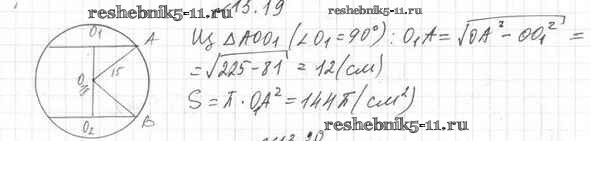 reshebnik5-11.ru 13.19 reshebnik5-11.ru
O₁ A
Из ΔAOO₁ (∠O₁=90°): O₁A=√OA²-OO₁² =
15
=√225-81 = 12(см)
O
S=π·O₁A²=144π(см²)
O₂ B
reshebnik5-11.ru